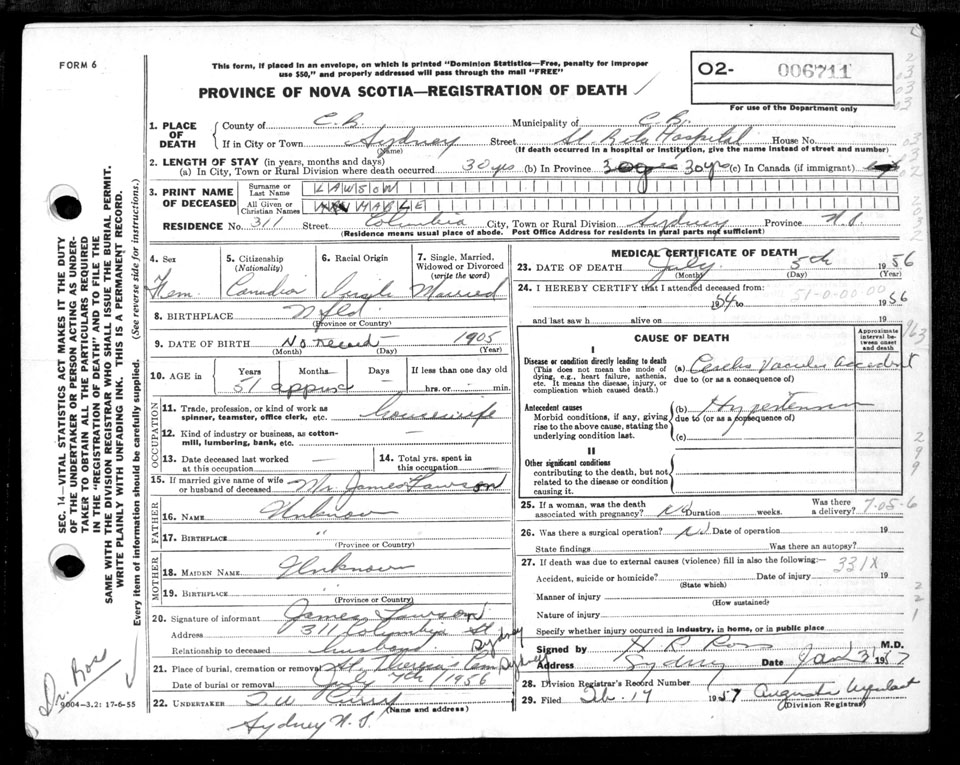 FORM 6
This form, if placed in an envelope, on which is printed "Dominion Statistics—Free, penalty for improper
use $50," and properly addressed will pass through the mail "FREE"
O2- 006711
For use of the Department only
PROVINCE OF NOVA SCOTIA—REGISTRATION OF DEATH
1. PLACE OF DEATH
County of C.B. Municipality of C.B.
If in City or Town Sydney Street St. Rita Hospital House No.
(Name) (If death occurred in a hospital or institution, give the name instead of street and number)
2. LENGTH OF STAY (in years, months and days)
(a) In City, Town or Rural Division where death occurred 30 yrs (b) In Province 30 yrs (c) In Canada (if immigrant)
3. PRINT NAME OF DECEASED
Surname or Last Name LAWSON
All Given or Christian Names MABLE
RESIDENCE No. 311 Street Columbia City, Town or Rural Division Sydney Province N.S.
(Residence means usual place of abode. Post Office Address for residents in rural parts not sufficient)
4. Sex Fem
5. Citizenship (Nationality) Canadian
6. Racial Origin
7. Single, Married, Widowed or Divorced (write the word) Married
8. BIRTHPLACE Nfld
(Province or Country)
9. DATE OF BIRTH No record 1905
(Month) (Day) (Year)
10. AGE in Years Months Days If less than one day
51 approx — — hrs. or min.
OCCUPATION
11. Trade, profession, or kind of work as spinner, teamster, office clerk, etc. Housewife
12. Kind of industry or business, as cotton-mill, lumbering, bank, etc. —
13. Date deceased last worked at this occupation —
14. Total yrs. spent in this occupation —
15. If married give name of wife or husband of deceased Mr. James Lawson
FATHER
16. NAME Unknown
17. BIRTHPLACE "
(Province or Country)
MOTHER
18. MAIDEN NAME Unknown
19. BIRTHPLACE
(Province or Country)
20. Signature of informant James Lawson
Address 311 Columbia St Sydney
Relationship to deceased husband
21. Place of burial, cremation or removal St. Theresa's Cem, Sydney
Date of burial or removal July 7th / 1956
22. UNDERTAKER T.W.
(Name and address)
Sydney N.S.
MEDICAL CERTIFICATE OF DEATH
23. DATE OF DEATH July 5th 1956
(Month) (Day) (Year)
24. I HEREBY CERTIFY that I attended deceased from:
1954 to 1956
51-0-00-00
and last saw h alive on 19
CAUSE OF DEATH
Approximate interval between onset and death
I
Disease or condition directly leading to death
(This does not mean the mode of dying, e.g., heart failure, asthenia, etc. It means the disease, injury, or complication which caused death.)
(a) accident
due to (or as a consequence of)
Antecedent causes
Morbid conditions, if any, giving rise to the above cause, stating the underlying condition last.
(b) Hypertension
due to (or as a consequence of)
(c)
II
Other significant conditions
contributing to the death, but not related to the disease or condition causing it.
25. If a woman, was the death associated with pregnancy? No Duration weeks. Was there a delivery?
7-05-6
26. Was there a surgical operation? No Date of operation 19
State findings Was there an autopsy?
27. If death was due to external causes (violence) fill in also the following:—
331X
Accident, suicide or homicide? Date of injury 19
(State which)
Manner of injury
(How sustained)
Nature of injury
Specify whether injury occurred in industry, in home, or in public place
Signed by H R Ross M.D.
Address Sydney Date Jan 31 1957
28. Division Registrar's Record Number
29. Filed Feb. 17 1957 Augusta
(Division Registrar)
SEC. 14—VITAL STATISTICS ACT MAKES IT THE DUTY
OF THE UNDERTAKER OR PERSON ACTING AS UNDER-
TAKER TO OBTAIN ALL THE PARTICULARS REQUIRED
IN THE "REGISTRATION OF DEATH" AND TO FILE THE
SAME WITH THE DIVISION REGISTRAR WHO SHALL ISSUE THE BURIAL PERMIT.
WRITE PLAINLY WITH UNFADING INK. THIS IS A PERMANENT RECORD.
Every item of information should be carefully supplied. (See reverse side for instructions.)
Dr. Ross
9004-3.2: 17-6-55